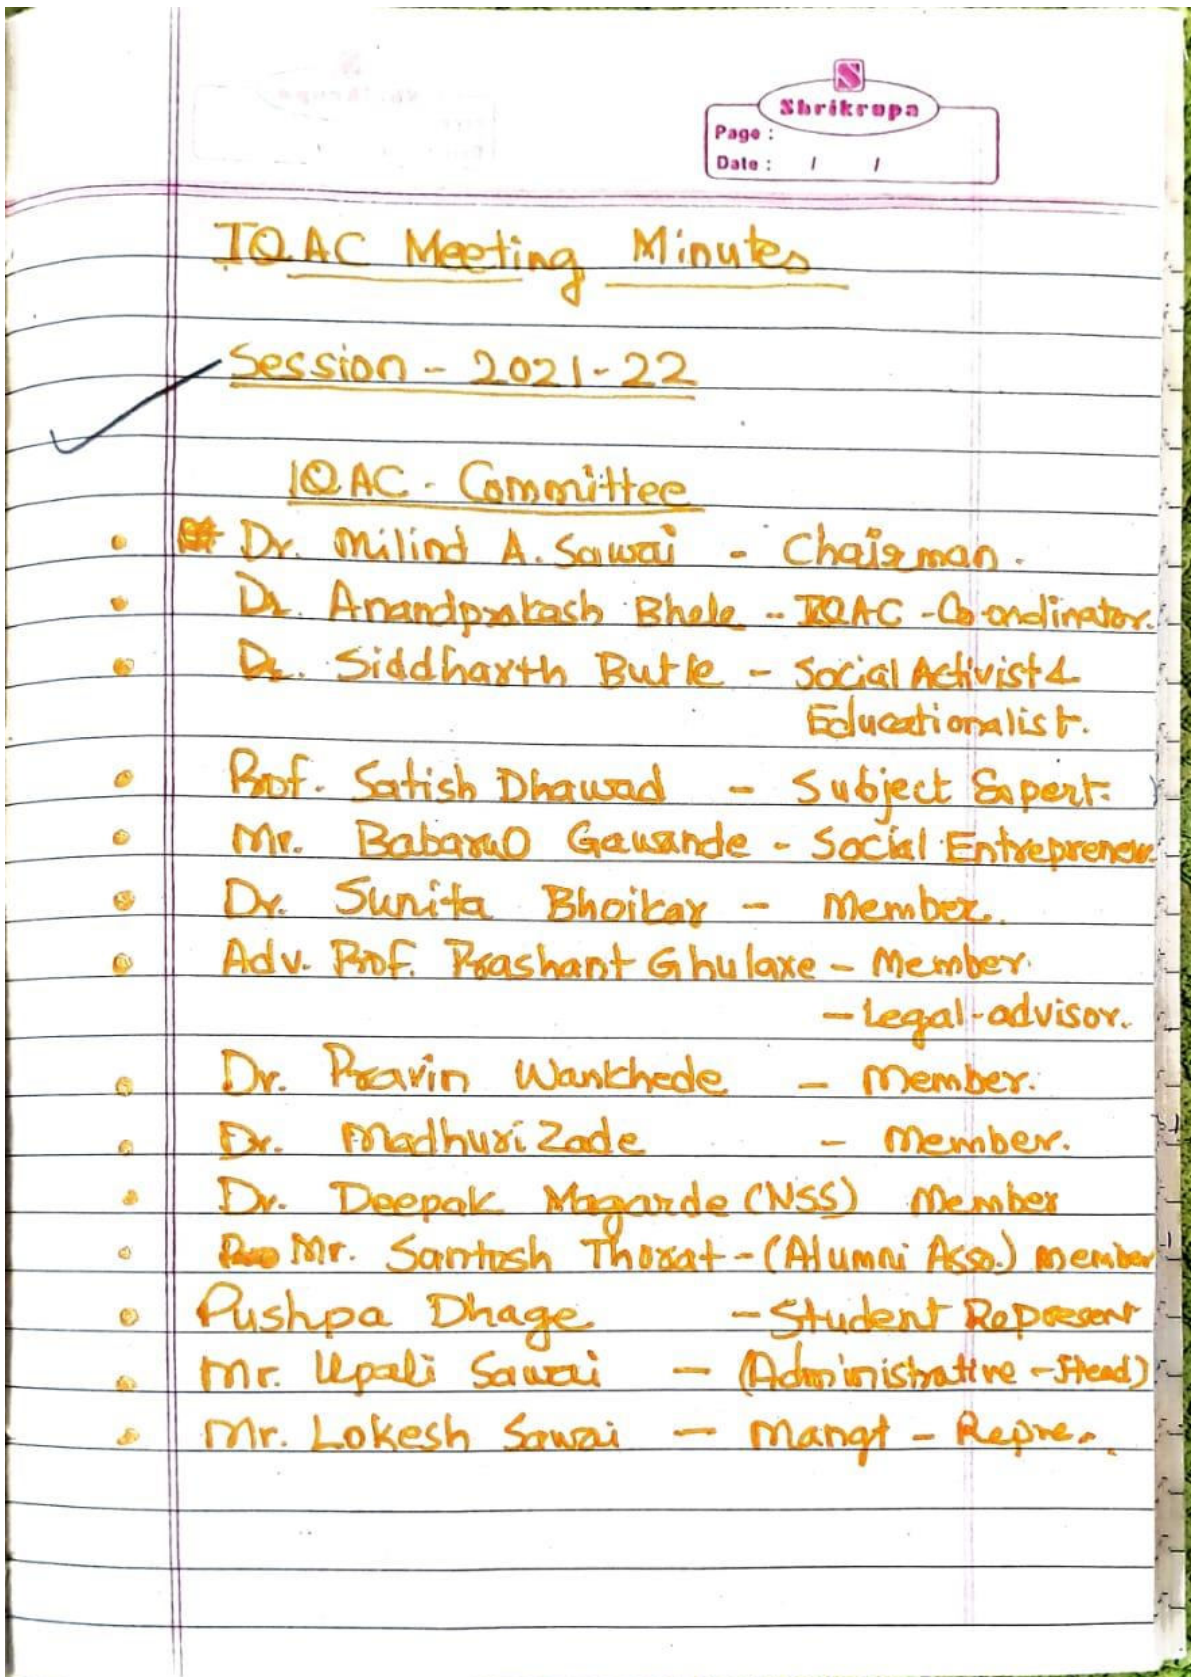 S
Shrikrupa
Page :
Date : / /
IQAC Meeting Minutes
Session - 2021-22
IQAC - Committee
Dr. Milind A. Sawai - Chairman.
Dr. Anandprakash Bhele - IQAC - Co-ordinator.
Dr. Siddharth Butle - Social Activist &
Educationalist.
Prof. Satish Dhawad - Subject Expert.
Mr. Babarao Gawande - Social Entrepreneur
Dr. Sunita Bhoikar - Member.
Adv. Prof. Prashant Ghulaxe - Member.
- Legal-advisor.
Dr. Pravin Wankhede - Member.
Dr. Madhuri Zade - Member.
Dr. Deepak Magarde (NSS) Member
Mr. Santosh Thorat - (Alumni Asso.) member
Pushpa Dhage - Student Represent
Mr. Upali Sawai - (Administrative - Head)
Mr. Lokesh Sawai - Mangt - Repre.